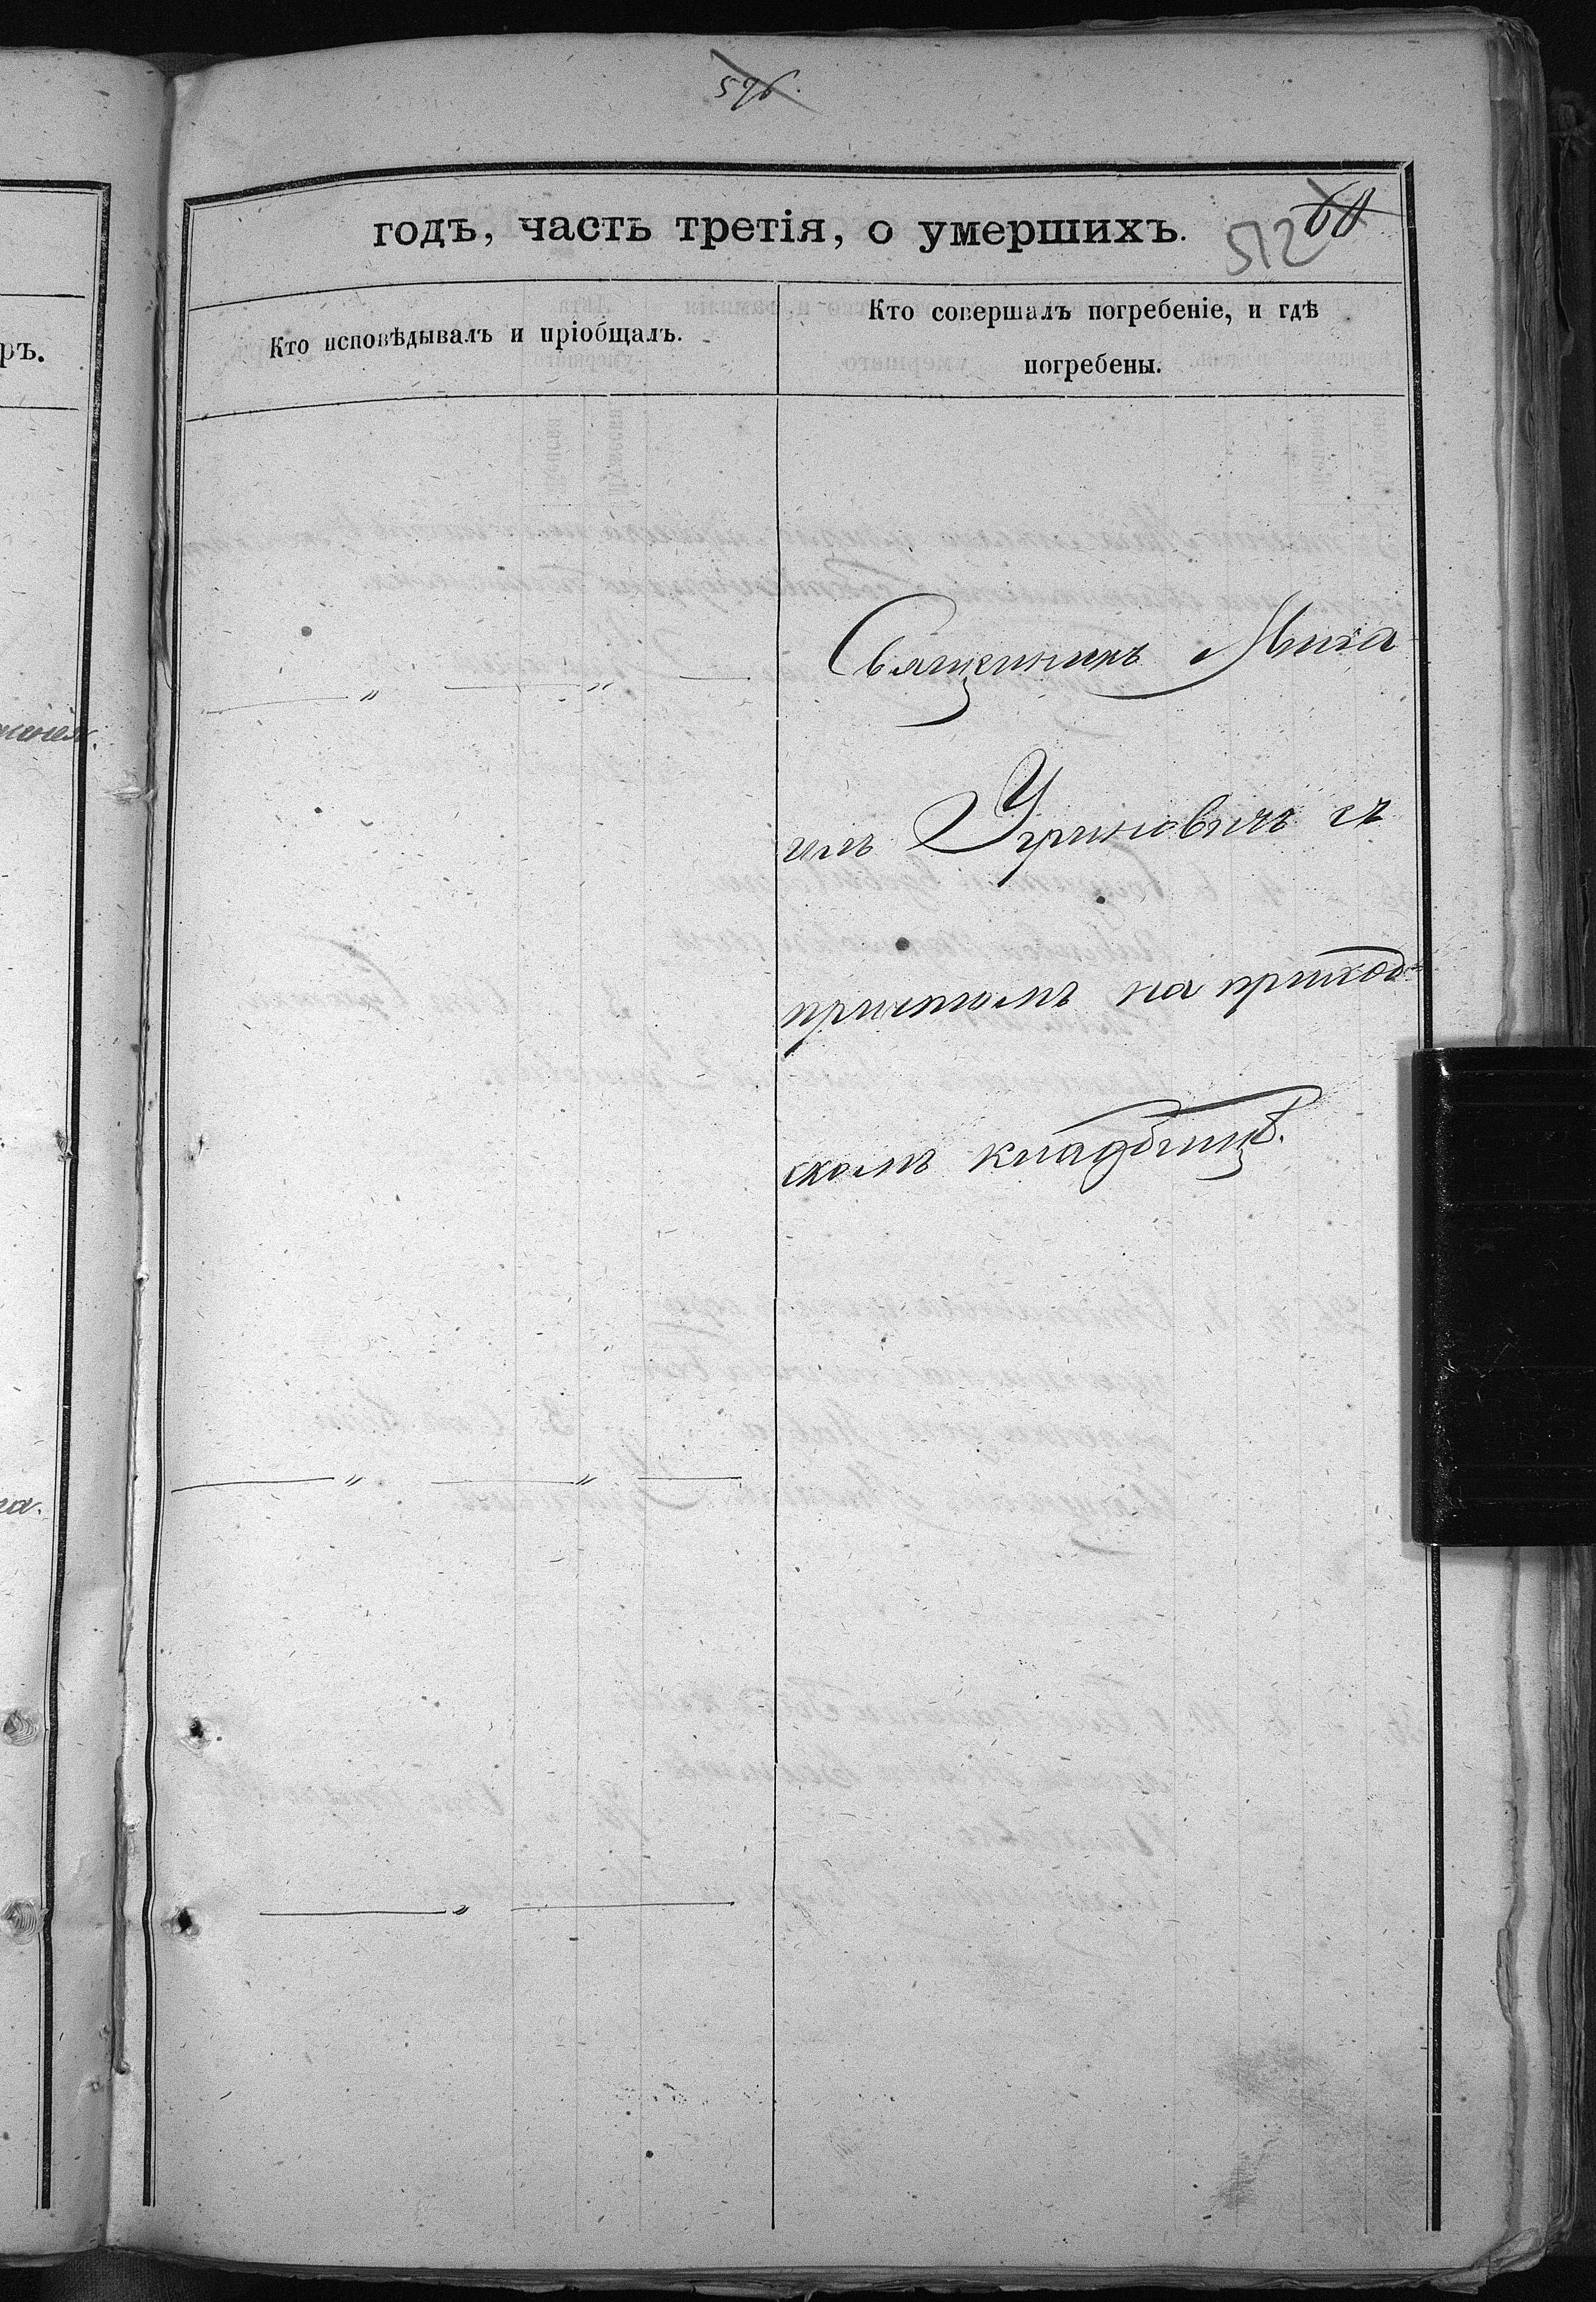 596.
годъ, часть третія, о умершихъ.
512 60
Кто исповѣдывалъ и пріобщалъ.
Кто совершалъ погребеніе, и гдѣ
погребены.
ръ.
Священникъ Миха-
илъ Угриновичъ съ
причтомъ на приход-
скомъ кладбищѣ.
— " — " —
— " — " —
— " —